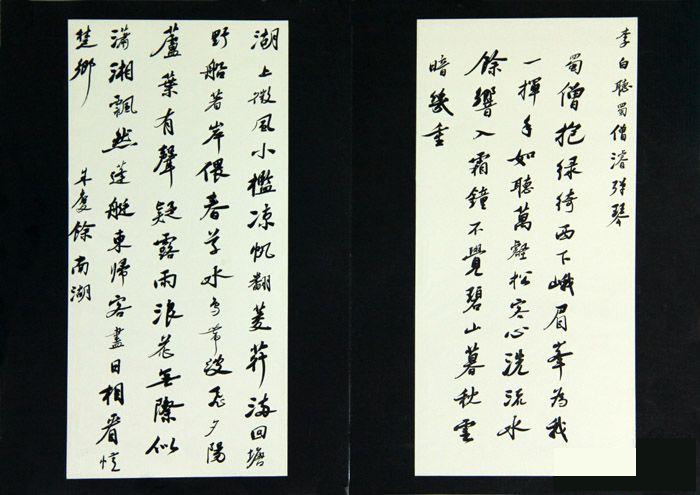 李白聽蜀僧濬弹琴
蜀僧抱绿绮西下峨眉峯為我
一揮手如聽萬壑松客心洗流水
餘響入霜鐘不覺碧山暮秋雲
暗幾重
湖上微風小檻凉帆翻菱荇满回塘
野船著岸偎春草水鸟带波飞夕陽
蘆葉有聲疑露雨浪花無際似
瀟湘飄然蓬艇東歸客盡日相看憶
楚鄉 朱慶餘南湖